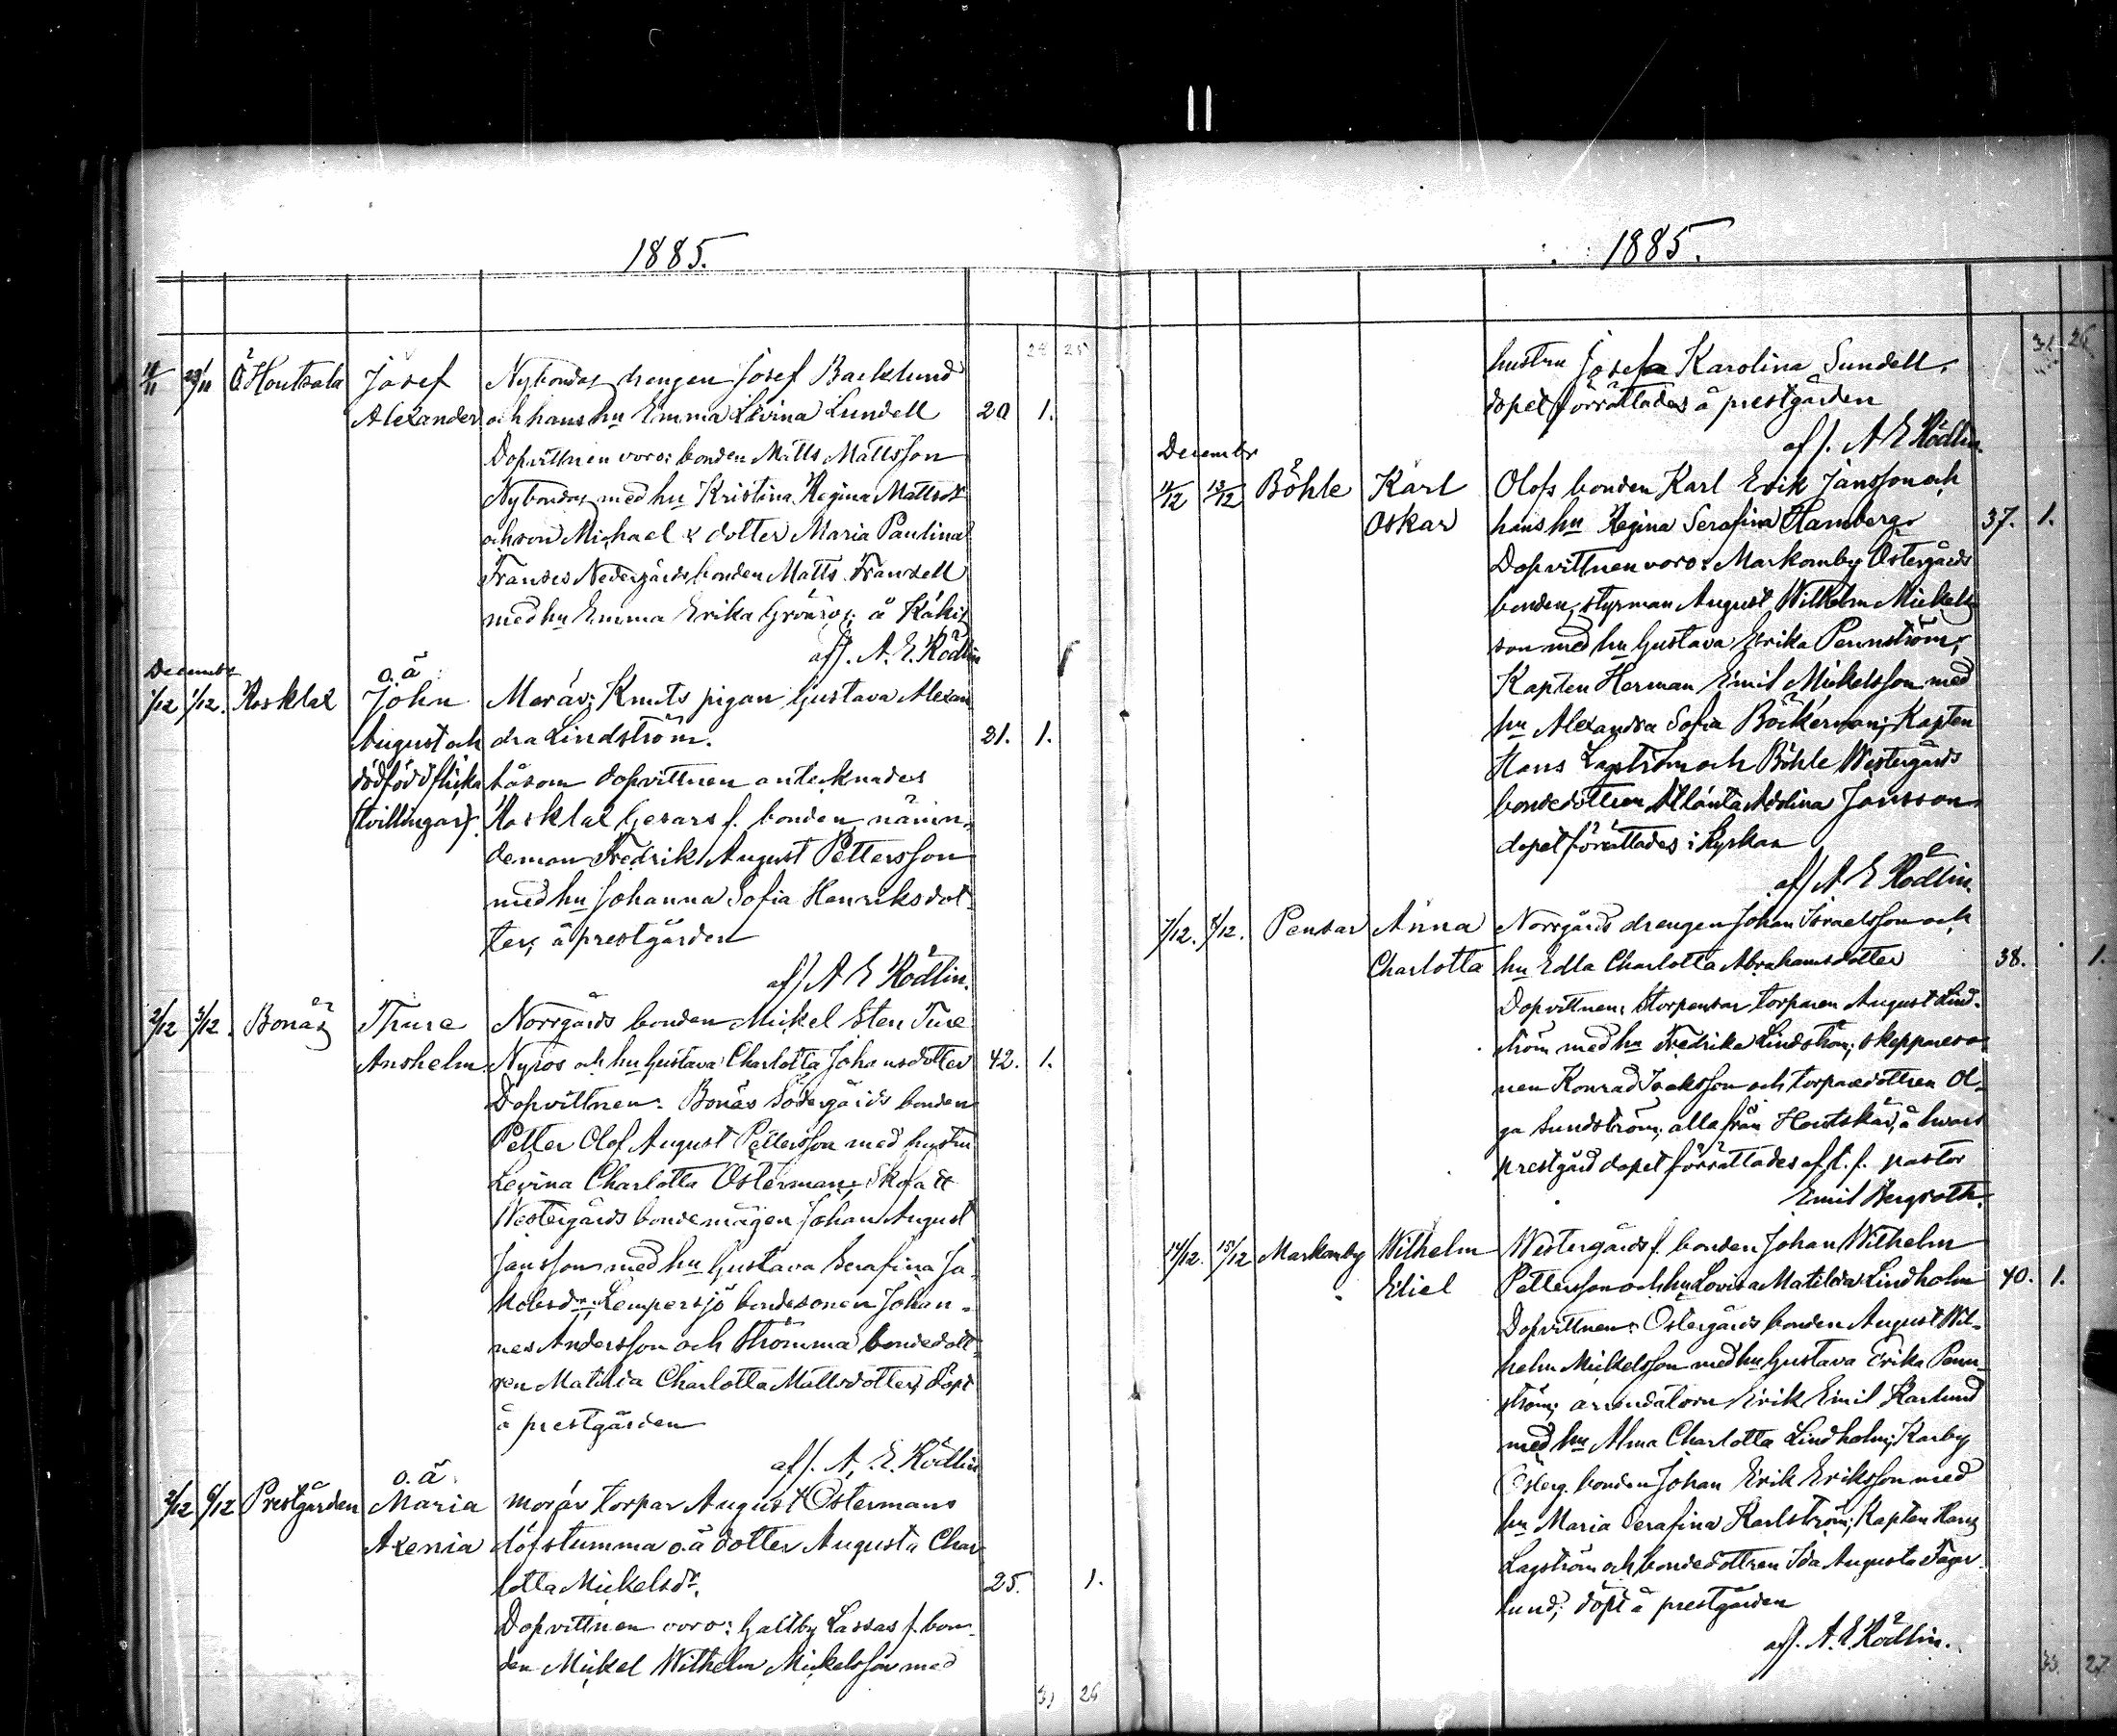 1885.
28 25
18/11 29/11 Ö Houtsala Josef Nybondas drengen Josef Backlund
Alexander och hans hu Emma Levina Lundell 20 1.
Dopvittnen voro: bonden Matts Mattsson
Nybondas med hu Kristina Regina Mattsdr
och son Michael & dotter Maria Paulina
Franses Nedergårds bonden Matts Franzell
med hu Emma Erika Grönros; å Käkis
af/. A. E. Rödlin
December o.ä
1/12 1/12. Rosklax John Moräs; Knuts pigan Gustava Alexan
August och dra Lindström. 21. 1.
dödfödd flicka såsom dopvittnen antecknades
(tvillingar). Rosklax Gesars f. bonden nämn-
deman Fredrik August Pettersson
med hu Johanna Sofia Henriksdot-
ter; å prestgården
af/ A E Rödlin.
2/12 3/12. Bonäs Thure Norrgårds bonden Mickel Sten Ture
Anshelm Nyros och hu Gustava Charlotta Johansdotter 42. 1.
Dopvittnen: Bonäs Södergårds bonden
Petter Olof August Pettersson med hustru
Levina Charlotta Österman; Skofatt
Westergårds bondemågen Johan August
Jansson med hu Gustava Serafina Ja-
kobsdr; Lempersjö bondesonen Johan-
nes Andersson och Strömma bondedott-
ren Matilda Charlotta Mattsdotter; döpt
å prestgården
af/. A. E. Rödlin
o.ä.
2/12 6/12 Prestgården Maria moräs torpar August Östermans
Axenia döfstumma o.ä dotter Augusta Char
lotta Mickelsdr. 25. 1.
Dopvittnen voro: Galtby Lassas f. bon-
den Mickel Wilhelm Mickelsson med
31 26
1885.
31 26
hustru Josefa Karolina Sundell,
dopet förrättades å prestgården
af/. A E Rödlin.
December
11/12 13/12 Böhle Karl Olofs bonden Karl Erik Jansson och
Oskar hans hu Regina Serafina Hamberg 37. 1.
Dopvittnen voro: Markomby Östergårds
bonden, styrman August Wilhelm Mickels
son med hu Gustava Erika Pennström;
Kapten Herman Emil Mickelsson med
hu Alexandra Sofia Böckerman; Kapten
Hans Lagström och Böhle Westergårds
bondedottren Atlanta Adolina Jansson
dopet förrättades i Kyrkan
af/ A E Rödlin.
7/12. 8/12. Pensar Anna Norrgårds drengen Johan Israelsson och
Charlotta hu Edla Charlotta Abrahamsdotter 38. 1.
Dopvittnen: Storpensar torparen August Lind-
ström med hu Fredrika Lindström; skeppareso-
nen Konrad Isaksson och torparedottren Ol-
ga Sundström; alla från Houtskär, å hwars
prestgård dopet förrättades af t. f. pastor
Emil Bergroth.
14/12. 15/12 Markomby Wilhelm Westergårds f. bonden Johan Wilhelm
Eliel Pettersson och hu Lovisa Matilda Lindholm 40. 1.
Dopvittnen: Östergårds bonden August Wil-
helm Mickelsson med hu Gustava Erika Penn-
ström; arrendatorn Erik Emil Karlund
med hu Alma Charlotta Lindholm; Karby
Österg. bonden Johan Erik Eriksson med
hu Maria Serafina Karlström; Kapten Hans
Lagström och bondedottren Ida Augusta Fager-
lund; döpt å prestgården
af/. A. E. Rödlin.
33. 27